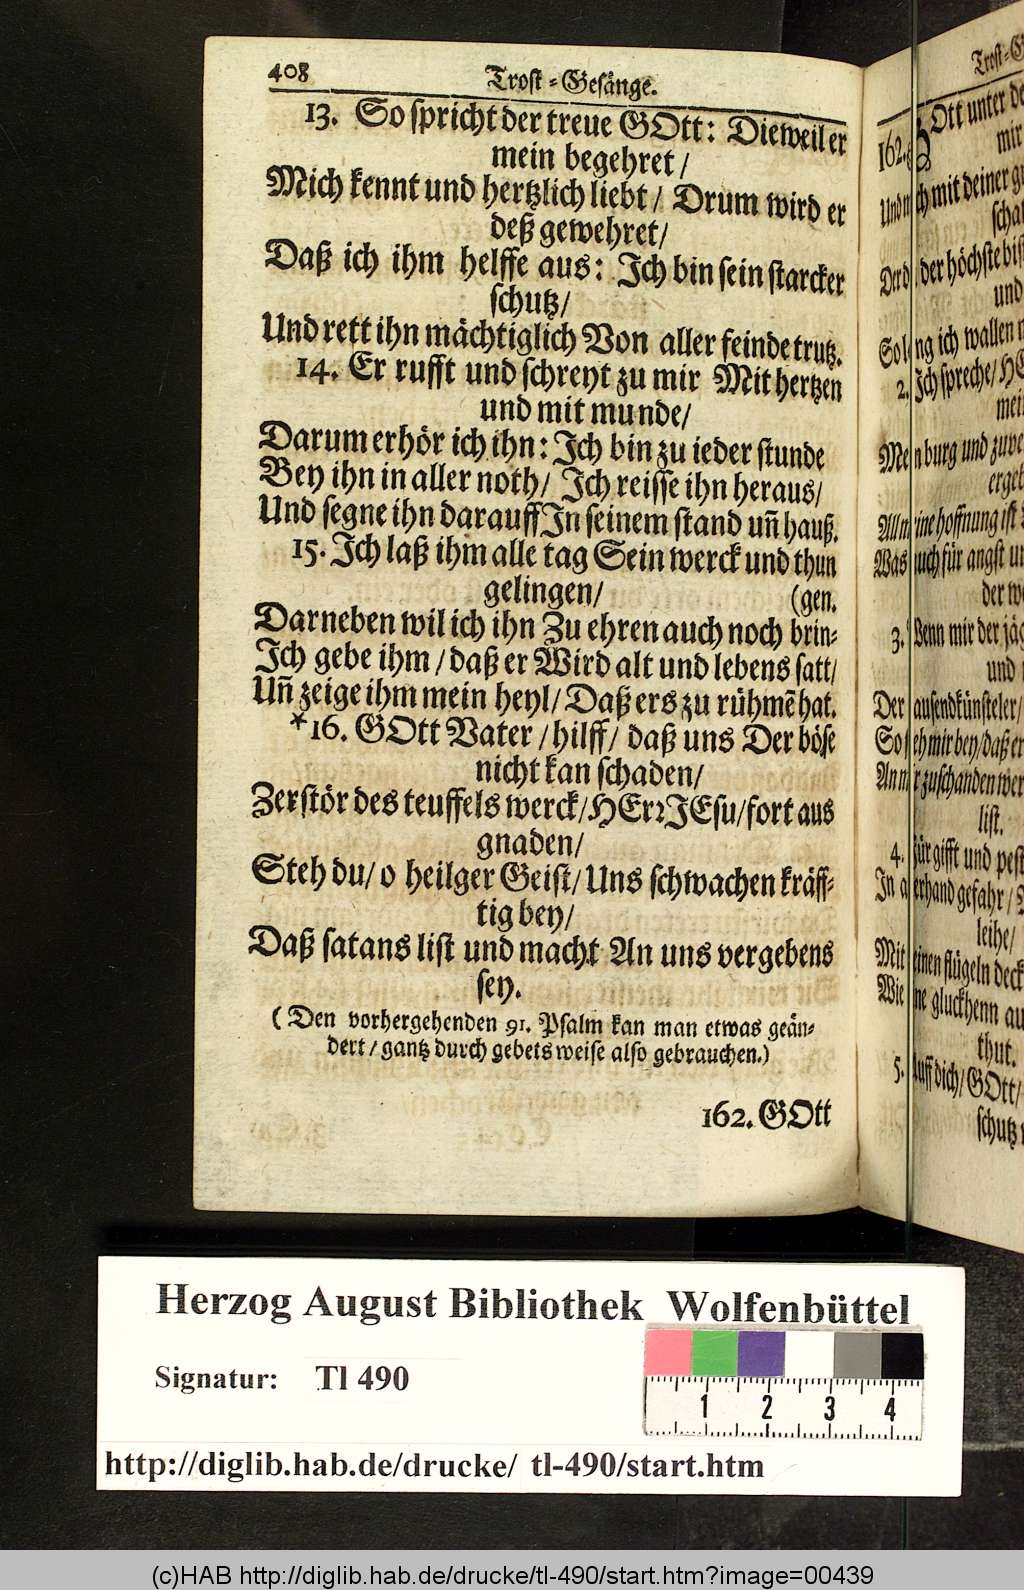 408
Trost-Gesänge.
13. So spricht der treue GOtt: Dieweil er
mein begehret /
Mich kennt und hertzlich liebt / Drum wird er
deß gewehret/
Daß ich ihm helffe aus: Ich bin sein starcker
schutz/
Und rett ihn mächtiglich Von aller feinde trutz.
14. Er rufft und schreyt zu mir Mit hertzen
und mit munde/
Darum erhör ich ihn: Ich bin zu ieder stunde
Bey ihn in aller noth/ Ich reisse ihn heraus/
Und segne ihn darauff In seinem stand uñ hauß.
15. Ich laß ihm alle tag Sein werck und thun
gelingen/ (gen.
Darneben wil ich ihn Zu ehren auch noch brin-
Ich gebe ihm / daß er Wird alt und lebens satt/
Uñ zeige ihm mein heyl/ Daß ers zu rühmē hat.
*16. GOtt Vater / hilff/ daß uns Der böse
nicht kan schaden/
Zerstör des teuffels werck/HErꝛ JEsu/fort aus
gnaden/
Steh du/ o heilger Geist/ Uns schwachen kräff-
tig bey/
Daß satans list und macht An uns vergebens
sey.
( Den vorhergehenden 91. Psalm kan man etwas geän-
dert / gantz durch gebets weise also gebrauchen.)
162. GOtt
162. GOtt unter
mir
mit deiner
der höchste
und
ich wallen
2. Ich spreche/
burg und
hoffnung ist
Was auch für angst
3. Wenn mir der
und
Der tausendkünsteler/
So steh mir bey/ daß er
zuschanden
list.
4. Für gifft und pest
In allerhand gefahr /
leihe/
Mit deinen flügeln
Wie eine gluckhenn
thut.
5. Auff dich/ GOtt/
schutz
Herzog August Bibliothek Wolfenbüttel
Signatur: Tl 490
1 2 3 4
http://diglib.hab.de/drucke/ tl-490/start.htm
(c)HAB http://diglib.hab.de/drucke/tl-490/start.htm?image=00439